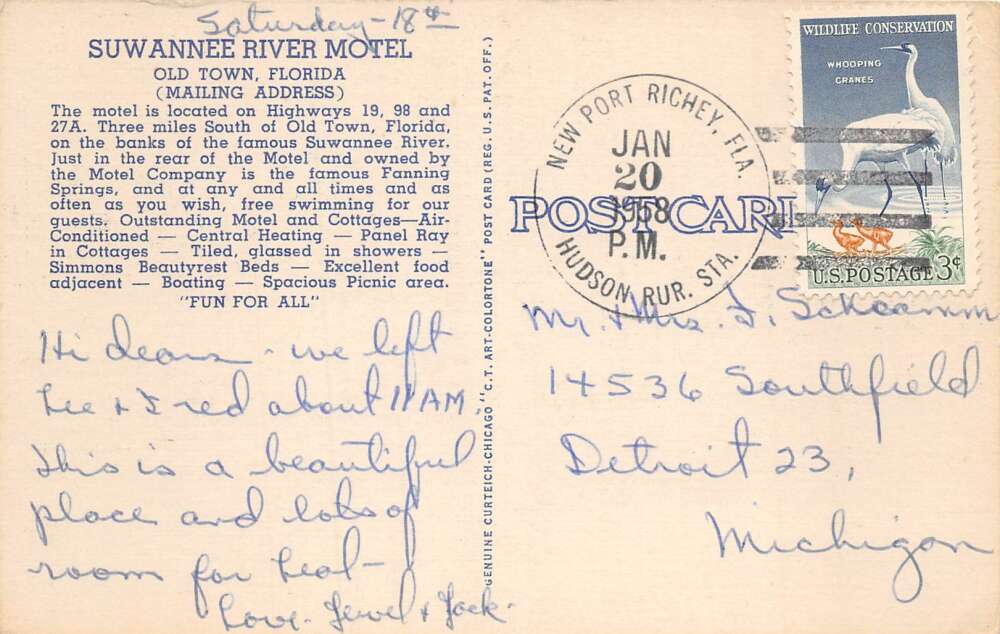 Saturday - 18th
SUWANNEE RIVER MOTEL
OLD TOWN, FLORIDA
(MAILING ADDRESS)
The motel is located on Highways 19, 98 and
27A. Three miles South of Old Town, Florida,
on the banks of the famous Suwannee River.
Just in the rear of the Motel and owned by
the Motel Company is the famous Fanning
Springs, and at any and all times and as
often as you wish, free swimming for our
guests. Outstanding Motel and Cottages—Air-
Conditioned — Central Heating — Panel Ray
in Cottages — Tiled, glassed in showers —
Simmons Beautyrest Beds — Excellent food
adjacent — Boating — Spacious Picnic area.
"FUN FOR ALL"
Hi dears - we left
Lee & Fred about 11 AM.
This is a beautiful
place and lots of
room for
Love - Jewel & Jack -
GENUINE CURTEICH-CHICAGO "C. T. ART-COLORTONE" POST CARD (REG. U. S. PAT. OFF.)
POST CARD
NEW PORT RICHEY, FLA.
JAN
20
1958
P. M.
HUDSON RUR. STA.
WILDLIFE CONSERVATION
WHOOPING
CRANES
U.S. POSTAGE 3¢
Mr. & Mrs. J.
14536 Southfield
Detroit 23,
Michigan